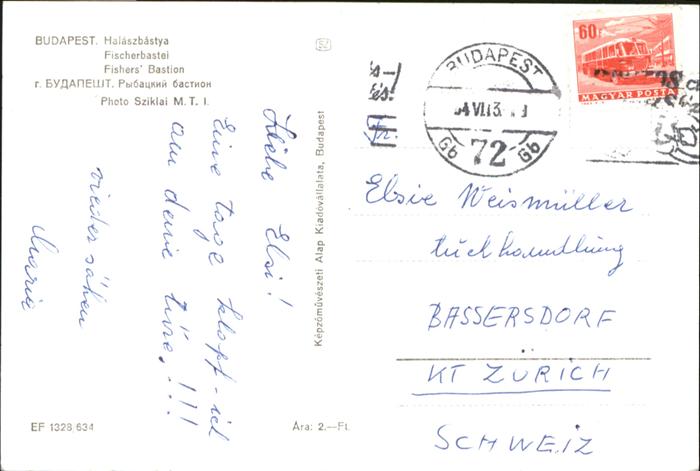 BUDAPEST. Halászbástya
Fischerbastei
Fishers' Bastion
г. БУДАПЕШТ. Рыбацкий бастион
Photo Sziklai M. T. I.
Liebe Elsi!
Eine tage klopf-ich
am deine türe,..!!!
wieder sähen
Marie
EF 1328/634
Ára: 2.—Ft.
Képzőművészeti Alap Kiadóvállalata, Budapest
BUDAPEST
72
Gb Gb
60f
MAGYAR POSTA
Elsie Weismüller
tuchhandlung
BASSERSDORF
KT ZÜRICH
SCHWEIZ